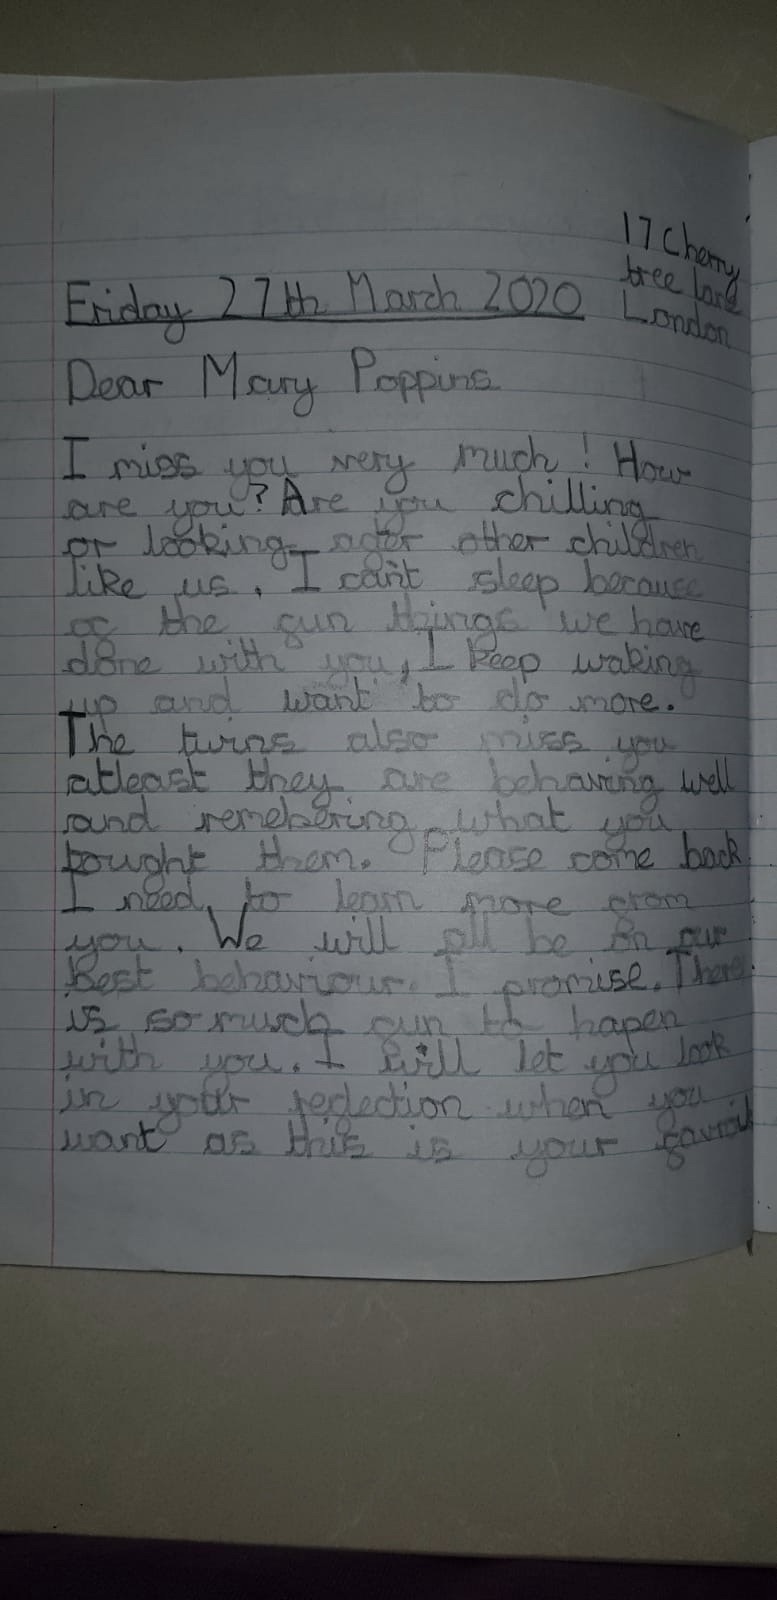 17 Cherry
tree lane
London
Friday 27th March 2020
Dear Mary Poppins
I miss you very much! How
are you? Are you chilling
or looking after other children
like us. I can't sleep because
of the fun things we have
done with you, I keep waking
up and want to do more.
The twins also miss you
atleast they are behaving well
and remebering what you
tought them. Please come back
I need to learn more from
you. We will all be on our
Best behaviour. I promise. There
is so much fun to hapen
with you. I will let you look
in your reflection when you
want as this is your